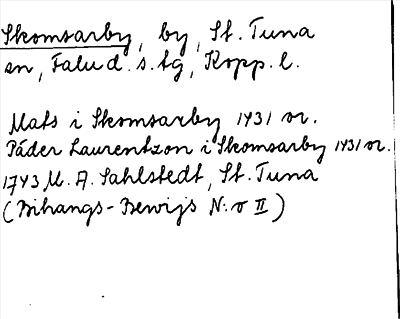 Skomsarby, by, St. Tuna
sn, Falu d. s. tg, Kopp. l.
Mats i Skomsarby 1431 or.
Päder Laurentzon i Skomsarby 1431 or.
1743 M. A. Sahlstedt, St. Tuna
(Bihangs-Bewijs N:o II)